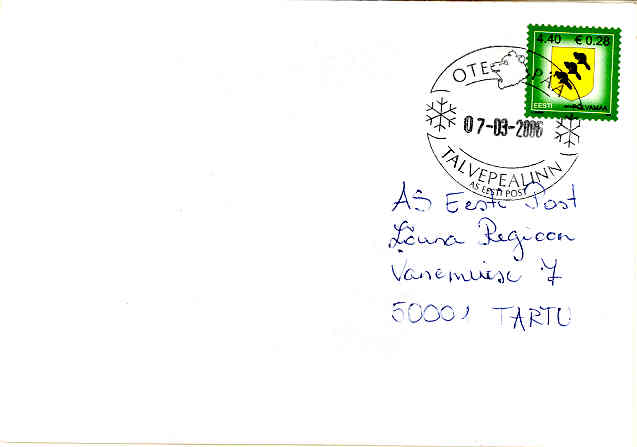 4.40 € 0.28
EESTI PÕLVAMAA
OTEPÄÄ
07-03-2006
TALVEPEALINN
AS EESTI POST
AS Eesti Post
Lõuna Regioon
Vanemuise 7
50001 TARTU